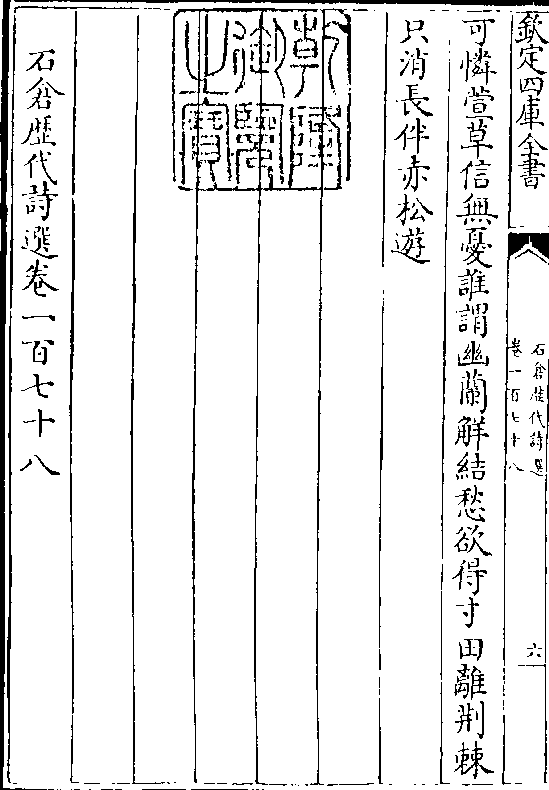 欽定四庫全書
石倉歴代詩選
卷一百七十八
六
可憐萱草信無憂誰謂幽蘭解結愁欲得寸田離荆棘
只消長伴赤松遊
乾隆御覽之寶
石倉歴代詩選卷一百七十八